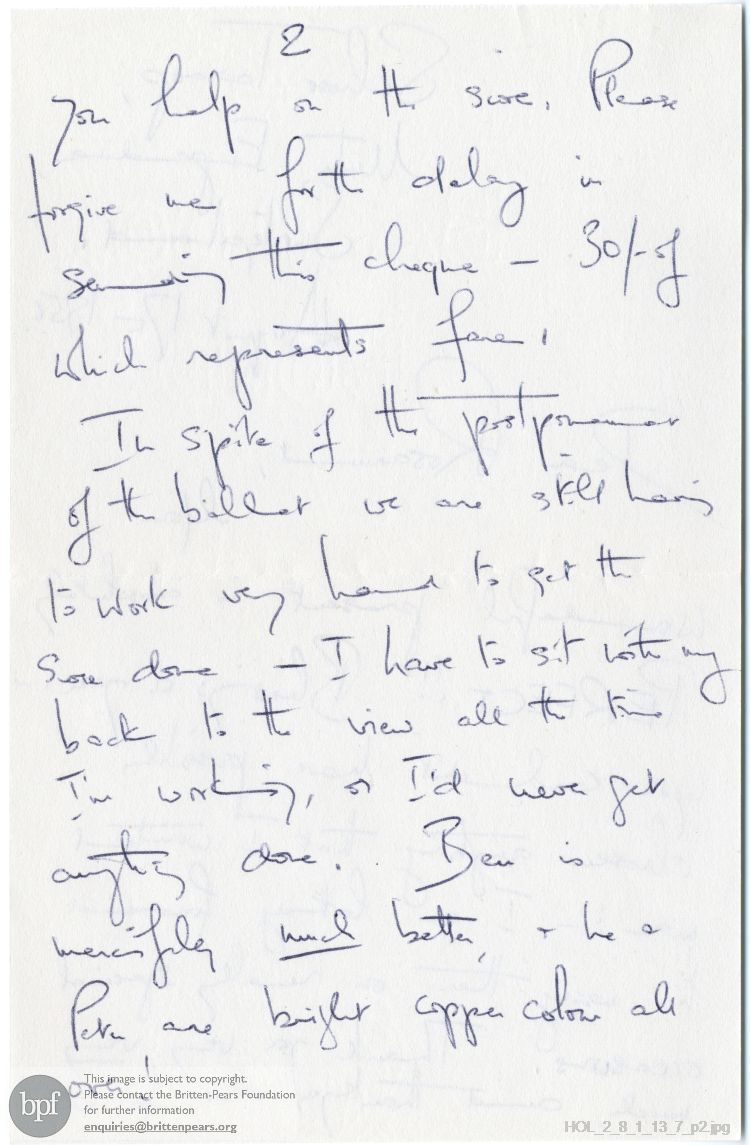 2
you help on the score. Please
forgive me for the delay in
sending this cheque — 30/- of
which represents fare.
In spite of the postponement
of the ballet we are still having
to work very hard to get the
score done — I have to sit with my
back to the view all the time
I'm working, or I'd never get
anything done. Ben is
mercifully much better, + he +
Peter are bright copper colour all
over!
bpf
This image is subject to copyright.
Please contact the Britten-Pears Foundation
for further information
enquiries@brittenpears.org
HOL_2_8_1_13_7_p2.jpg